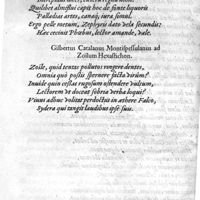 Quilibet almiflui capit hoc de fonte liquoris
Palladias artes, cana, iura simul.
Ergo pelle metum, Zephyris dato vela secundis:
Hæc cecinit Phœbus, lector amande, vale.
Gilbertus Catalanus Montispessulanus ad
Zoilum Hexastichon.
Zoile, quid tentas pollutos ringere dentes,
Omnia quò possis spernere facta virûm?
Inuide quin cessas rugosum ostendere vultum,
Lectorem vt doceat sobria verba loqui?
Viuus adhuc volitat perdoctus in æthere Falco,
Sydera qui tangit laudibus ipse suis.